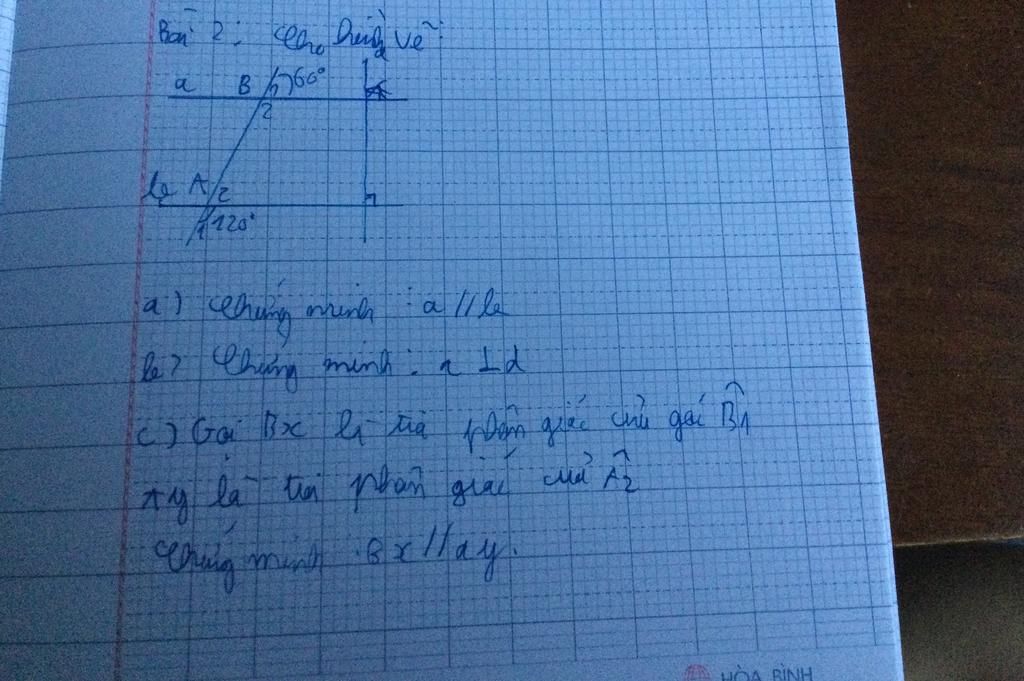 Bài 2: Cho hình vẽ:
d
a B 1 60°
2
b A 2
1 120°
a) Chứng minh: a // b
b) Chứng minh: a ⊥ d
c) Gọi Bx là tia phân giác của góc B̂1
Ay là tia phân giác của Â2
Chứng minh Bx // ay.
HÒA BÌNH